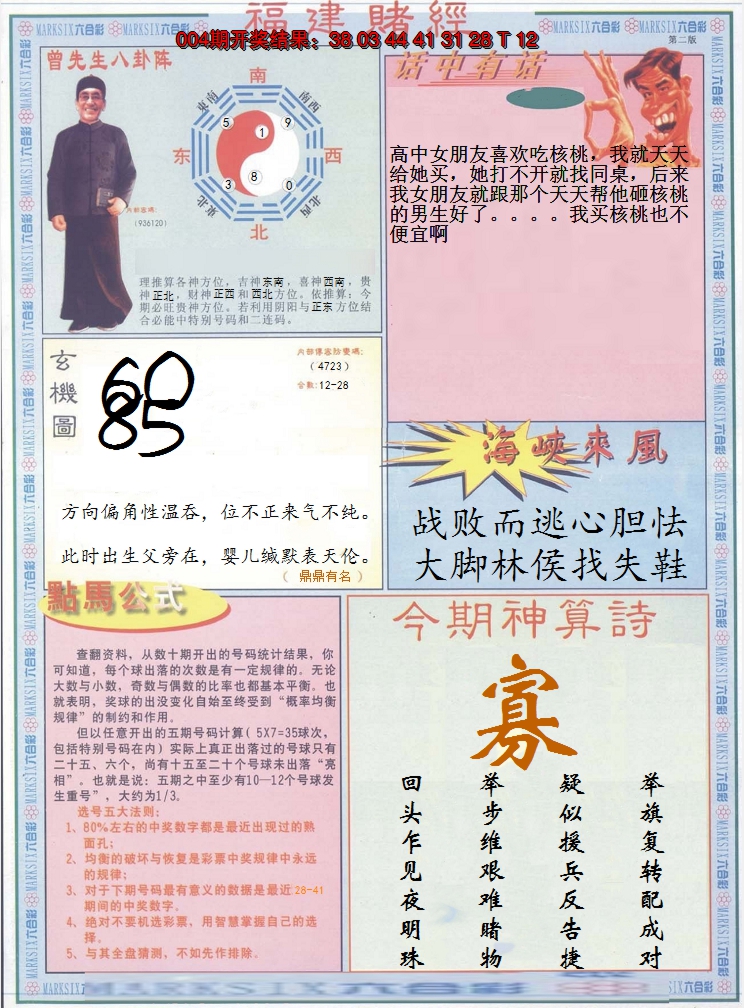 福建賭經
004期开奖结果：38 03 44 41 31 28 T 12
第二版
MARKSIX六合彩
曾先生八卦阵
南
东南
西南
5
9
1
东
西
3
8
0
东北
西北
北
内部密碼:
(936120)
理推算各神方位，吉神东南，喜神西南，贵
神正北，财神正西和西北方位。依推算：今
期必旺贵神方位。若利用阴阳与正东方位结
合必能中特别号码和二连码。
话中有话
高中女朋友喜欢吃核桃，我就天天
给她买，她打不开就找同桌，后来
我女朋友就跟那个天天帮他砸核桃
的男生好了。。。。我买核桃也不
便宜啊
玄機圖
60
85
（4723）
合数:12-28
方向偏角性温吞，位不正来气不纯。
此时出生父旁在，婴儿缄默表天伦。
（ 鼎鼎有名 ）
海峽來風
战败而逃心胆怯
大脚林侯找失鞋
點馬公式
查翻资料，从数十期开出的号码统计结果，你
可知道，每个球出落的次数是有一定规律的。无论
大数与小数，奇数与偶数的比率也都基本平衡。也
就表明，奖球的出没变化自始至终受到“概率均衡
规律”的制约和作用。
但以任意开出的五期号码计算( 5X7=35球次，
包括特别号码在内) 实际上真正出落过的号球只有
二十五、六个，尚有十五至二十个号球未出落“亮
相”。也就是说：五期之中至少有10—12个号球发
生重号”，大约为1/3。
选号五大法则：
1、80%左右的中奖数字都是最近出现过的熟
面孔；
2、均衡的破坏与恢复是彩票中奖规律中永远
的规律；
3、对于下期号码最有意义的数据是最近28-41
期间的中奖数字。
4、绝对不要机选彩票，用智慧掌握自己的选
择。
5、与其全盘猜测，不如先作排除。
今期神算詩
寡
举旗复转配成对
疑似援兵反告捷
举步维艰难睹物
回头乍见夜明珠